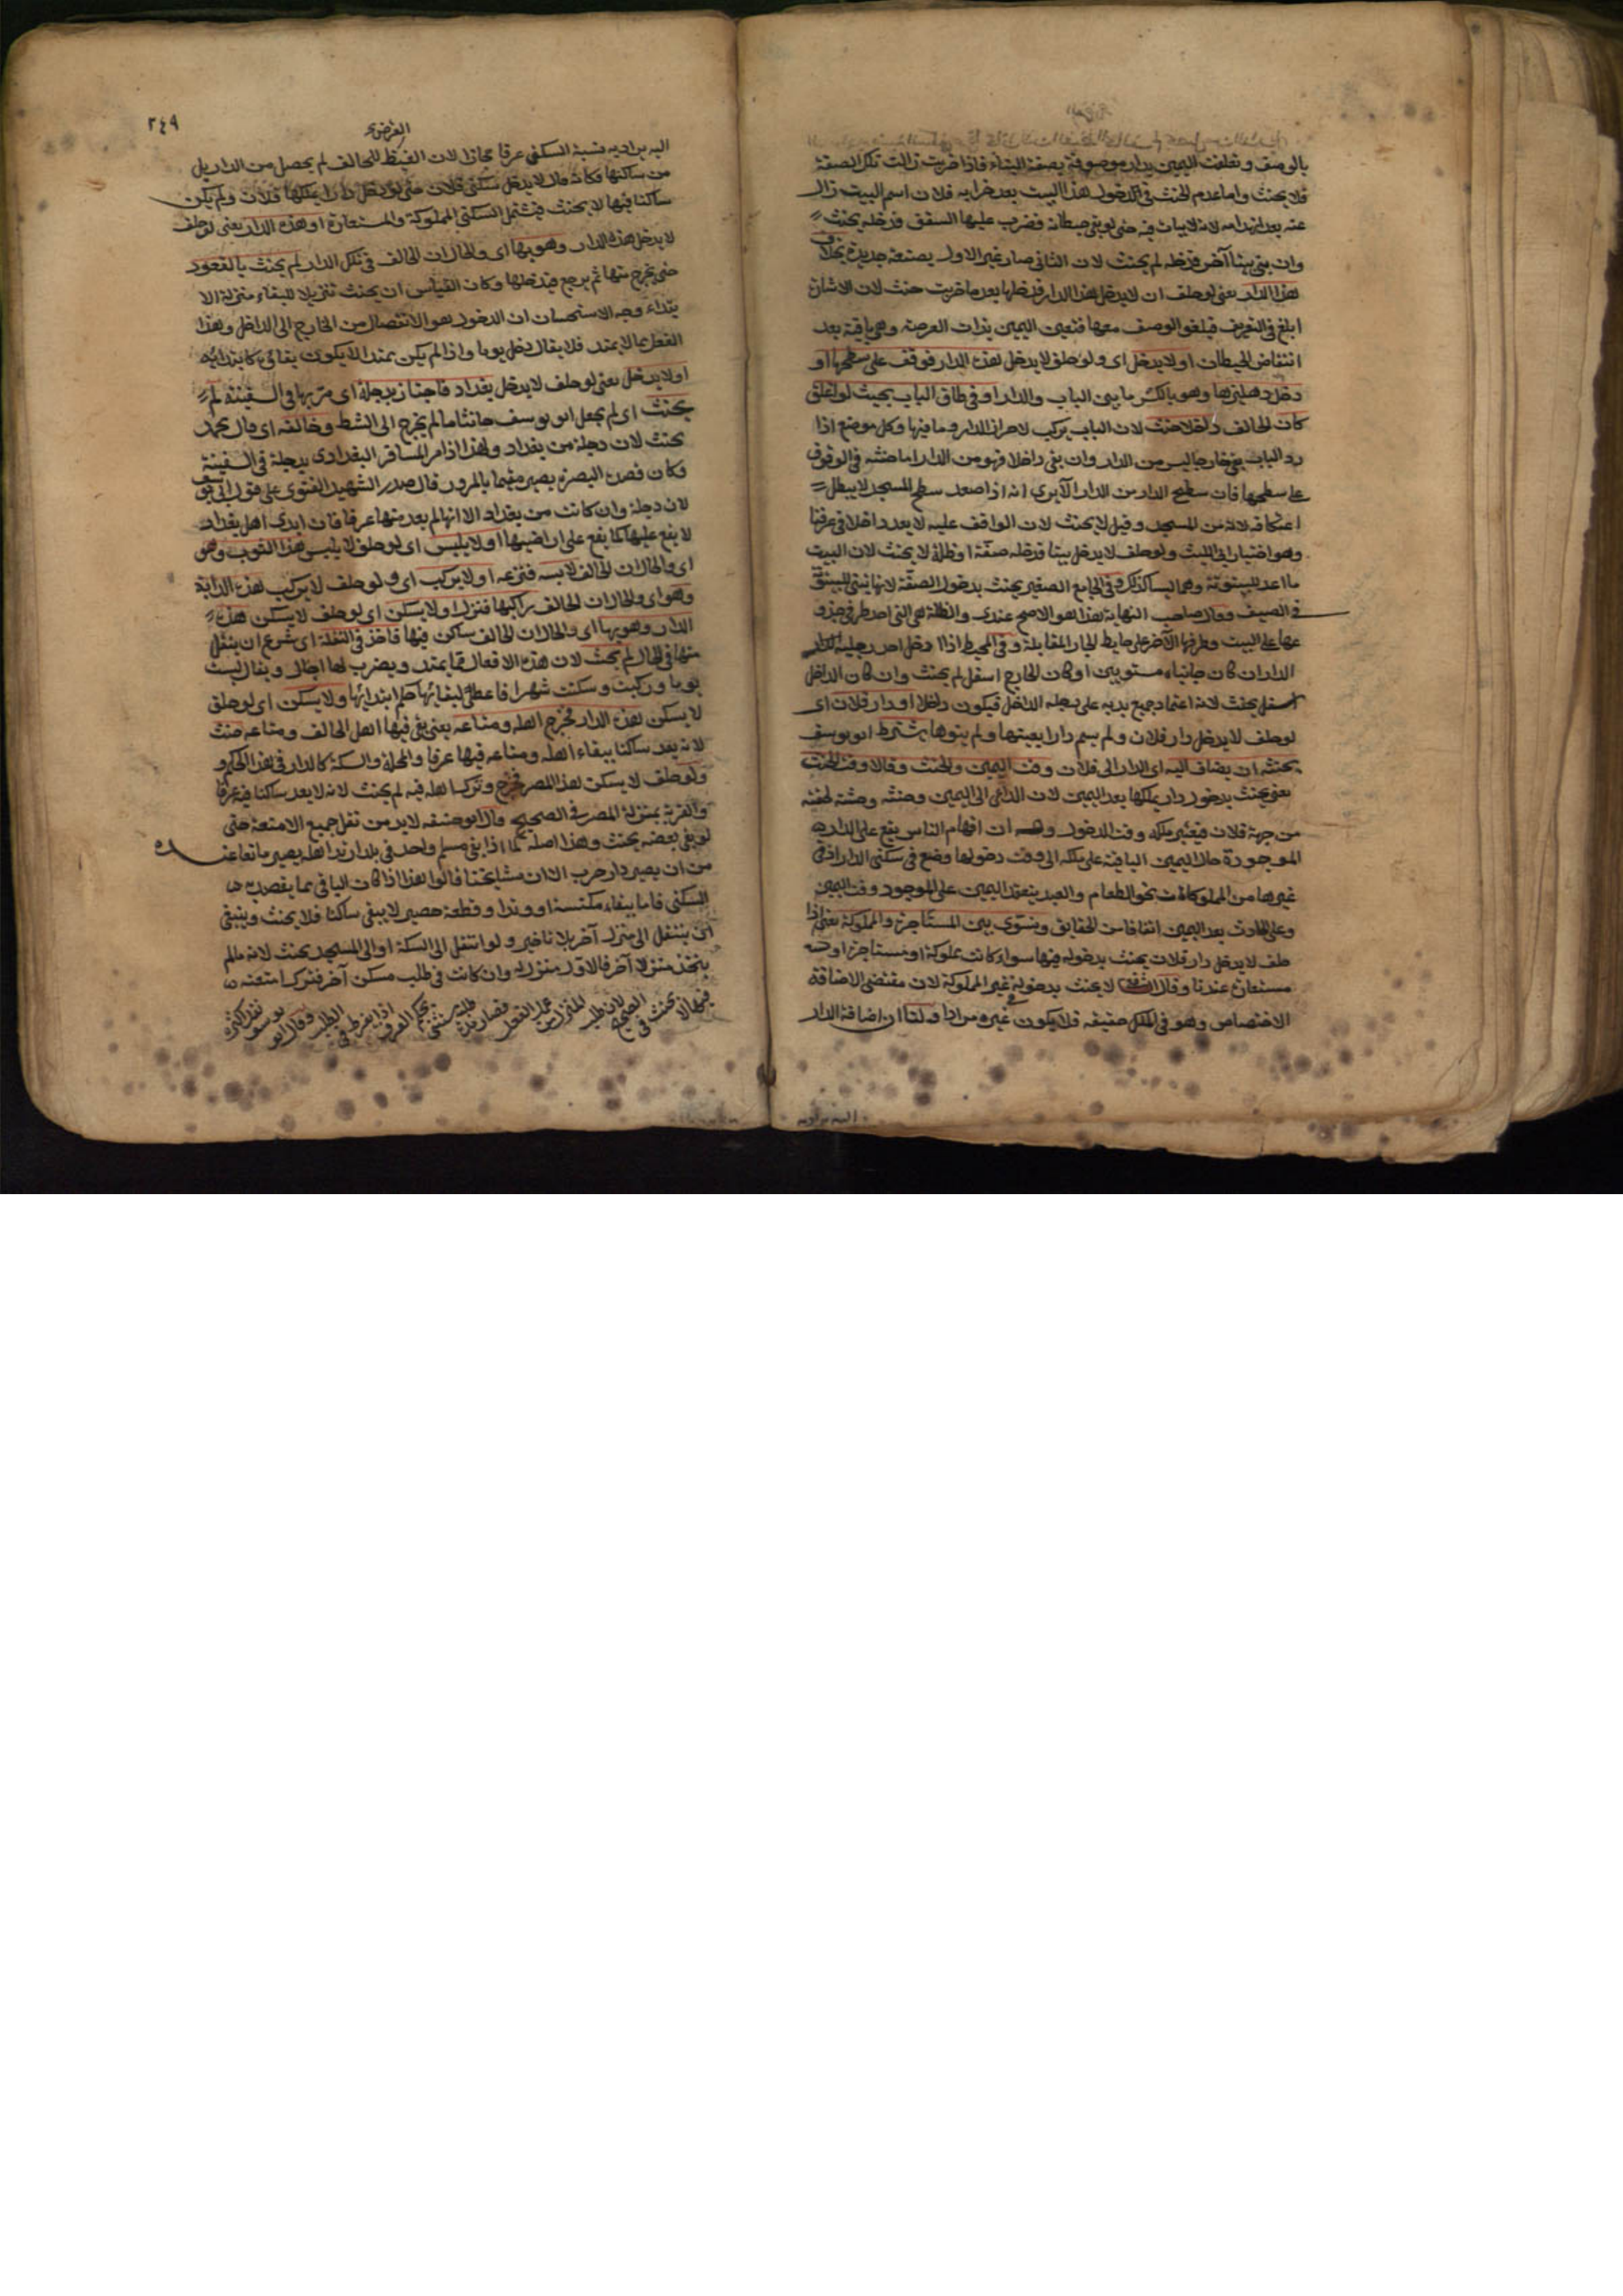 بالوصف وتعلقت اليمين بدار موصوفة بصفة البناء فاذا خربت زالت تلك الصفة
فلا يحنث واما عدم الحنث في الدخول هذا البيت بعد خرابه فلان اسم البيت زال
عنه بعد انهدامه لانه لا يبات فيه حتى لو بقي حيطانه فضرب عليها السقف فدخله يحنث
وان بني بيتا آخر فدخله لم يحنث لان الثاني صار غير الاول بصنعة جديدة بخلاف
هذا الدار يعني لو حلف ان لا يدخل هذا الدار فدخلها بعد ما خربت حنث لان الاشارة
ابلغ في التعريف فيلغو الوصف معها فتعين اليمين بذات العرصة وهي باقية بعد
انتقاض الحيطان او لا يدخل اي ولو حلف لا يدخل هذه الدار فوقف على سطحها او
دخل دهليزها وهو بالكسر ما بين الباب والدار او في طاق الباب بحيث لو اغلق
كان الحالف داخلا حنث لان الباب يركب لاحراز الدار وما فيها وكل موضع اذا
رد الباب بقي خارجا ليس من الدار وان بقي داخلا فهو من الدار اما حنثه في الوقوف
على سطحها فان سطح الدار من الدار الا يرى انه اذا صعد سطح المسجد لا يبطل
اعتكافه لانه من المسجد وقيل لا يحنث لان الواقف عليه لا يعد داخلا في عرفنا
وهو اختيار ابي الليث ولو حلف لا يدخل بيتا فدخله صفة او ظلة لا يحنث لان البيت
ما اعد للبيتوتة وهما ليسا كذلك وفي الجامع الصغير يحنث بدخول الصفة لانها تبنى للبيتوتة
في الصيف وقال صاحب النهاية هذا هو الاصح عندي والظلة هي التي احد طرفي جذو
عها على البيت وطرفها الآخر على حايط الجار المقابلة وفي المحيط اذا ادخل احد رجليه
الدار ان كان جانباه مستويين او كان الخارج اسفل لم يحنث وان كان الداخل
اسفل يحنث لانه اعتماد جميع بدنه على رجله الداخل فيكون داخلا او دار فلان اي
لو حلف لا يدخل دار فلان ولم يسم دارا بعينها ولم ينوها يشترط ابو يوسف
بحنثه ان يضاف اليه اي الدار الى فلان وقت اليمين والحنث وقالا وقت الحنث
يعني يحنث بدخول دار يملكها بعد اليمين لان الداعي الى اليمين
من جهة فلان فيعتبر ملكه وقت الدخول وله ان افهام الناس يقع على الدار
الموجودة حال اليمين الباقية على ملكه الى وقت دخولها وضع في سكنى الدار اذ في
غيرها من المملوكات نحو الطعام والعبد ينعقد اليمين على الموجود وقت اليمين
وعلى الحادث بعد اليمين اتفاقا من الحقايق ونسوي بين المستأجرة والمملوكة يعني اذا
حلف لا يدخل دار فلان يحنث بدخوله فيها سواء كانت مملوكة او مستاجرة او
مستعارة عندنا وقال الشافعي لا يحنث بدخوله في غير المملوكة لان مقتضى الاضافة
الاختصاص وهو في الملك حقيقة فلا يكون غيره مرادا ولنا ان اضافة الدار
اليه يراد به
٢٤٩
العرض
اليه يراد به نسبة السكنى عرفا مجازا لان الغيظ للحالف لم يحصل من الدار بل
من ساكنها فكانه قال لا يدخل سكنى فلان حتى لو دخل دارا يملكها فلان ولم يكن
ساكنا فيها لا يحنث فيشتمل السكنى المملوكة والمستعارة او هذه الدار يعني لو حلف
لا يدخل هذه الدار وهو بها اي والحال ان الحالف في تلك الدار لم يحنث بالقعود
حتى يخرج منها ثم يرجع فيدخلها وكان القياس ان يحنث تنزيلا للبقاء منزلة الا
بتداء وجه الاستحسان ان الدخول هو الانتقال من الخارج الى الداخل وهذا
الفعل مما لا يمتد فلا يقال دخل يوما واذا لم يكن يمتد لا يكون بقاؤه كابتدائه
او لا يدخل يعني لو حلف لا يدخل بغداد فاجتاز بدجلة اي مر بها في السفينة لم
يحنث اي لم يجعل ابو يوسف حانثا ما لم يخرج الى الشط وخالفه اي قال محمد
يحنث لان دجلة من بغداد ولهذا اذا مر المسافر البغدادي بدجلة في السفينة
وكان قصده البصرة يصير مقيما بالمرور قال صدر الشهيد الفتوى على قول ابي يوسف
لان دجلة وان كانت من بغداد الا انها لم يعد منها عرفا فان ايدي اهل بغداد
لا يقع عليها كما يقع على اراضيها او لا يلبس اي لو حلف لا يلبس هذا الثوب وهو
اي والحال ان الحالف لابسه فنزعه او لا يركب اي ولو حلف لا يركب هذه الدابة
وهو اي والحال ان الحالف راكبها فنزل او لا يسكن اي لو حلف لا يسكن هذه
الدار وهو بها اي والحال ان الحالف ساكن فيها فاخذ في النقلة اي شرع ان ينقل
منها في الحال لم يحنث لان هذه الافعال مما يمتد ويضرب لها اجال ويقال لبست
يوما وركبت وسكنت شهرا فاعطي لبقائها حكم ابتدائها ولا يسكن اي لو حلق
لا يسكن هذه الدار فخرج اهله ومتاعه يعني بقي فيها اهل الحالف ومتاعه حنث
لانه يعد ساكنا ببقاء اهله ومتاعه فيها عرفا والمحلة والسكة كالدار في هذا الحكم و
ولو حلف لا يسكن هذا المصر فخرج وترك اهله فيه لم يحنث لانه لا يعد ساكنا فيه عرفا
والقرية بمنزلة المصر في الصحيح وقال ابو حنيفة لا بد من نقل جميع الامتعة حتى
لو بقي بعضه يحنث وهذا اصله كما اذا بقي مسلم واحد في بلد ارتد اهله يصير مانعا عنده
من ان يصير دار حرب الا ان مشايخنا قالوا هذا اذا كان الباقي مما يقصد به
السكنى فاما ببقاء مكنسة او وتدا وقطعة حصير لا يبقى ساكنا فلا يحنث وينبغي
ان ينتقل الى منزل آخر بلا تاخير ولو انتقل الى السكة او الى المسجد يحنث لانه ما لم
يتخذ منزلا آخر فالاول منزله وان كانت في طلب مسكن آخر فترك امتعته
فيها لا يحنث في الصحيح لان طلب المنزل من عمل النقل فصار مدة طلبه مستثنى بحكم العرف اذا لم يفرط في الطلب وقال ابو يوسف نقل اكثره